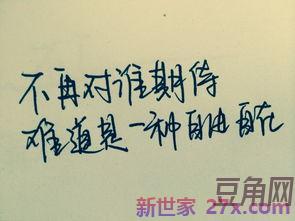 不再对谁期待
难道是一种自由自在
豆角网
新世家 27x.com